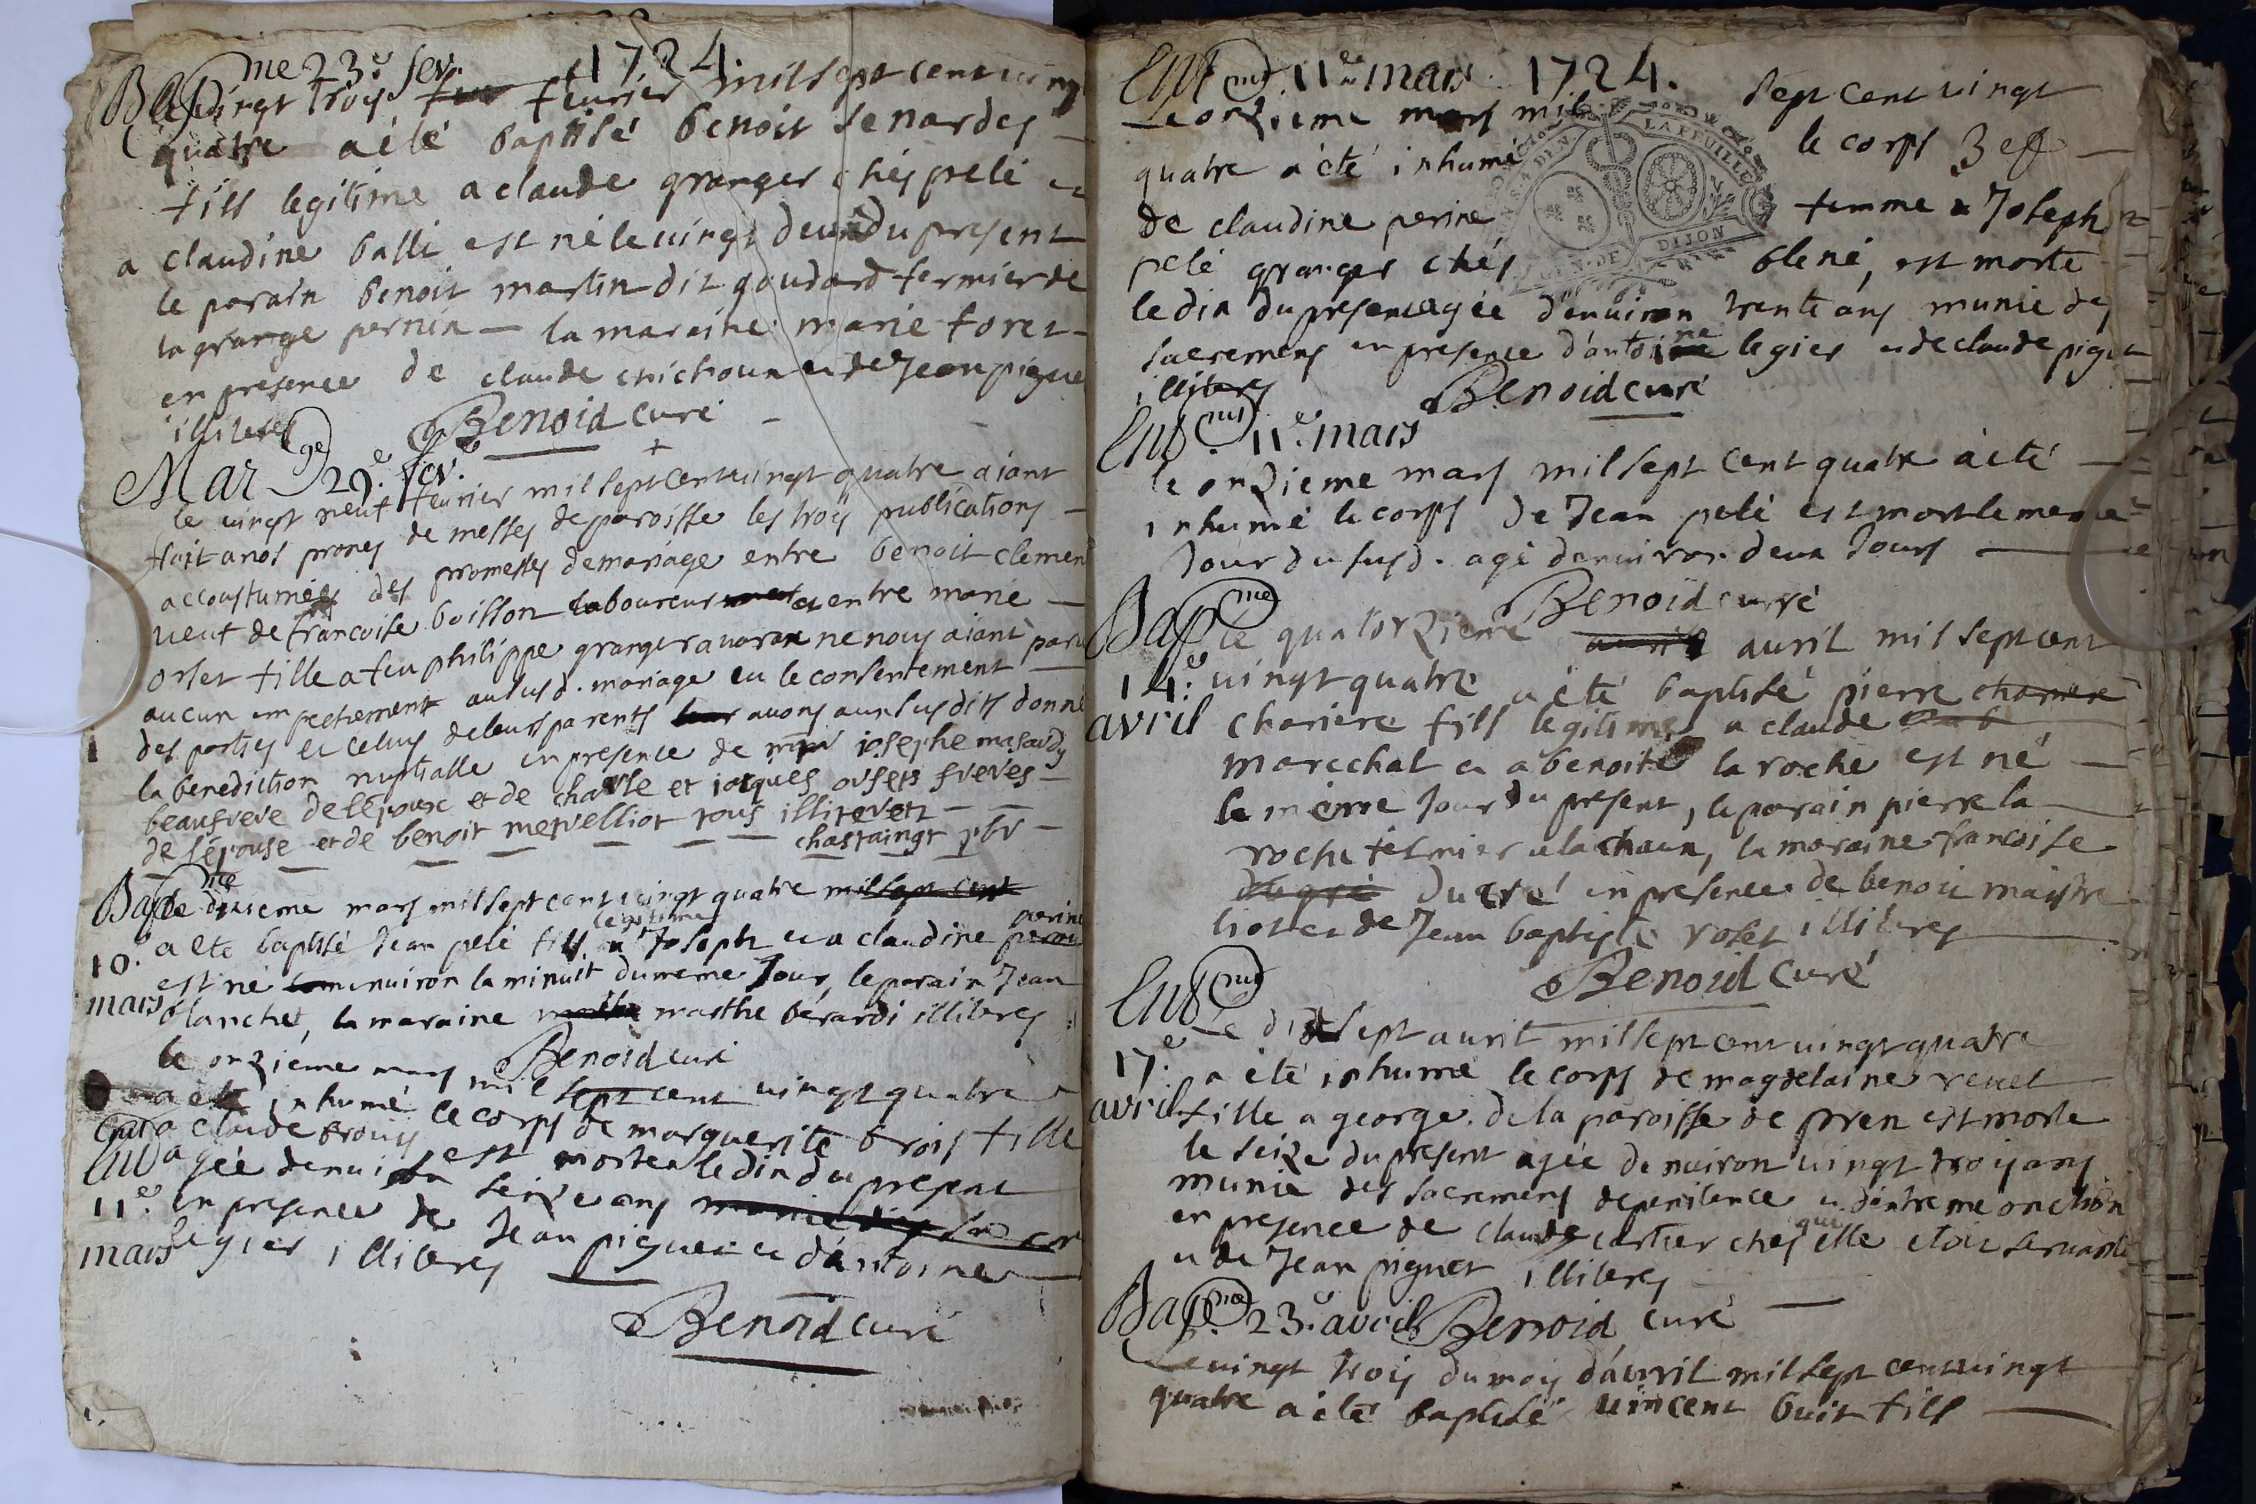 1724.
Bap.me 23.e fev.
le vingt trois fevrier mil sept cent vingt
quatre a été baptisé benoit senardes
fils legitime a claude granger chés pelé et
a claudine balli est né le vingt deux du present
le parain benoit martin dit goudard fermier de
la grange pernin — la maraine marie foret
en presence de claude chichoux et de Jean pigue
illiteres Benoid curé
Mar.ge 29.e fev.
le vingt neuf fevrier mil sept cent vingt quatre aiant
fait a nos prones de messes de paroisse les trois publications
accoustumées des promesses de mariage entre benoit clemen
veuf de francoise boisson laboureur et entre marie
orset fille a feu philippe granger a varax ne nous aiant paru
aucun empechement au susd. mariage vu le consentement
des parties et celuy de leurs parents avons aux susdits donné
la benediction nuptialle en presence de josephe
beaufrere de l'epoux et de charle et jacques orsets freres
de l'épouse et de benoit mervelliot tous illiterez
chastaingt pbr
Bap.me
10.e mars
le dixieme mars mil sept cent vingt quatre mil sept cent
a ete baptisé Jean pelé fils legitime a Joseph et a claudine perine
est né environ la minuit du meme Jour, le parain Jean
blanchet, la maraine marthe bérardi illiteres
Benoid curé
le onzieme mars mil sept cent vingt quatre
a été inhumé le corps de marguerite brois fille
a claude brois est morte le dix du present
agée denviron seize ans
en presence de Jean piguet et d'antoine
legier illiteres
11.e mars
Benoid curé
Ent.mt 11.e mars 1724.
Le onzieme mars mil sept cent vingt
quatre a été inhumé le corps
de claudine perine femme a Joseph
pelé granger chés blené, est morte
le dix du present agée denviron trente ans munie des
sacremens en presence d'antoine legier et de claude piguet
illiteres Benoid curé
Ent.mt 11.e mars
le onzieme mars mil sept cent quatre a été
inhumé le corps de Jean pelé est mort le meme
Jour du susd. agé denviron deux Jours
Benoid curé
Bap.me
14.e avril
le quatorzieme avril mil sept cent
vingt quatre a été baptisé pierre
chariere fils legitime a claude
marechal et a benoite la roche est né
le meme Jour du present, le parain pierre la
roche fermier a la chaux, la maraine francoise
ducré en presence de benoit maistre
liot et de Jean baptiste rolet illiteres
Benoid curé
Ent.mt
17.e avril
Le dix sept avril mil sept cent vingt quatre
a été inhumé le corps de magdelaine revel
fille a george de la paroisse de pren est morte
le seize du present agée denviron vingt trois ans
munie des sacremens de penitence et d'extreme onction
en presence de claude cartier ches qui elle etoit servante
et de Jean piguet illiteres
Bap.me 23.e avril Benoid curé
Le vingt trois du mois d'avril mil sept cent vingt
quatre a été baptisé vincent buit fils
LA FEUILLE
GEN. DE DIJON